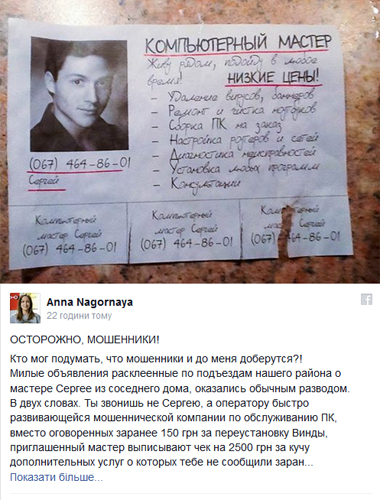 КОМПЬЮТЕРНЫЙ МАСТЕР
Живу рядом, подойду в любое
время! НИЗКИЕ ЦЕНЫ!
– Удаление вирусов, баннеров
– Ремонт и чистка ноутбуков
– Сборка ПК на заказ
– Настройка роутеров и сетей
– Диагностика неисправностей
– Установка любых программ
– Консультации
(067) 464-86-01
Сергей
Компьютерный
мастер Сергей
(067) 464-86-01
Компьютерный
мастер Сергей
(067) 464-86-01
Компьютерный
мастер Сергей
(067) 464-86-01
Anna Nagornaya
22 години тому
ОСТОРОЖНО, МОШЕННИКИ!
Кто мог подумать, что мошенники и до меня доберутся?!
Милые объявления расклеенные по подъездам нашего района о
мастере Сергее из соседнего дома, оказались обычным разводом.
В двух словах. Ты звонишь не Сергею, а оператору быстро
развивающейся мошеннической компании по обслуживанию ПК,
вместо оговоренных заранее 150 грн за переустановку Винды,
приглашенный мастер выписывают чек на 2500 грн за кучу
дополнительных услуг о которых тебе не сообщили заран...
Показати більше...